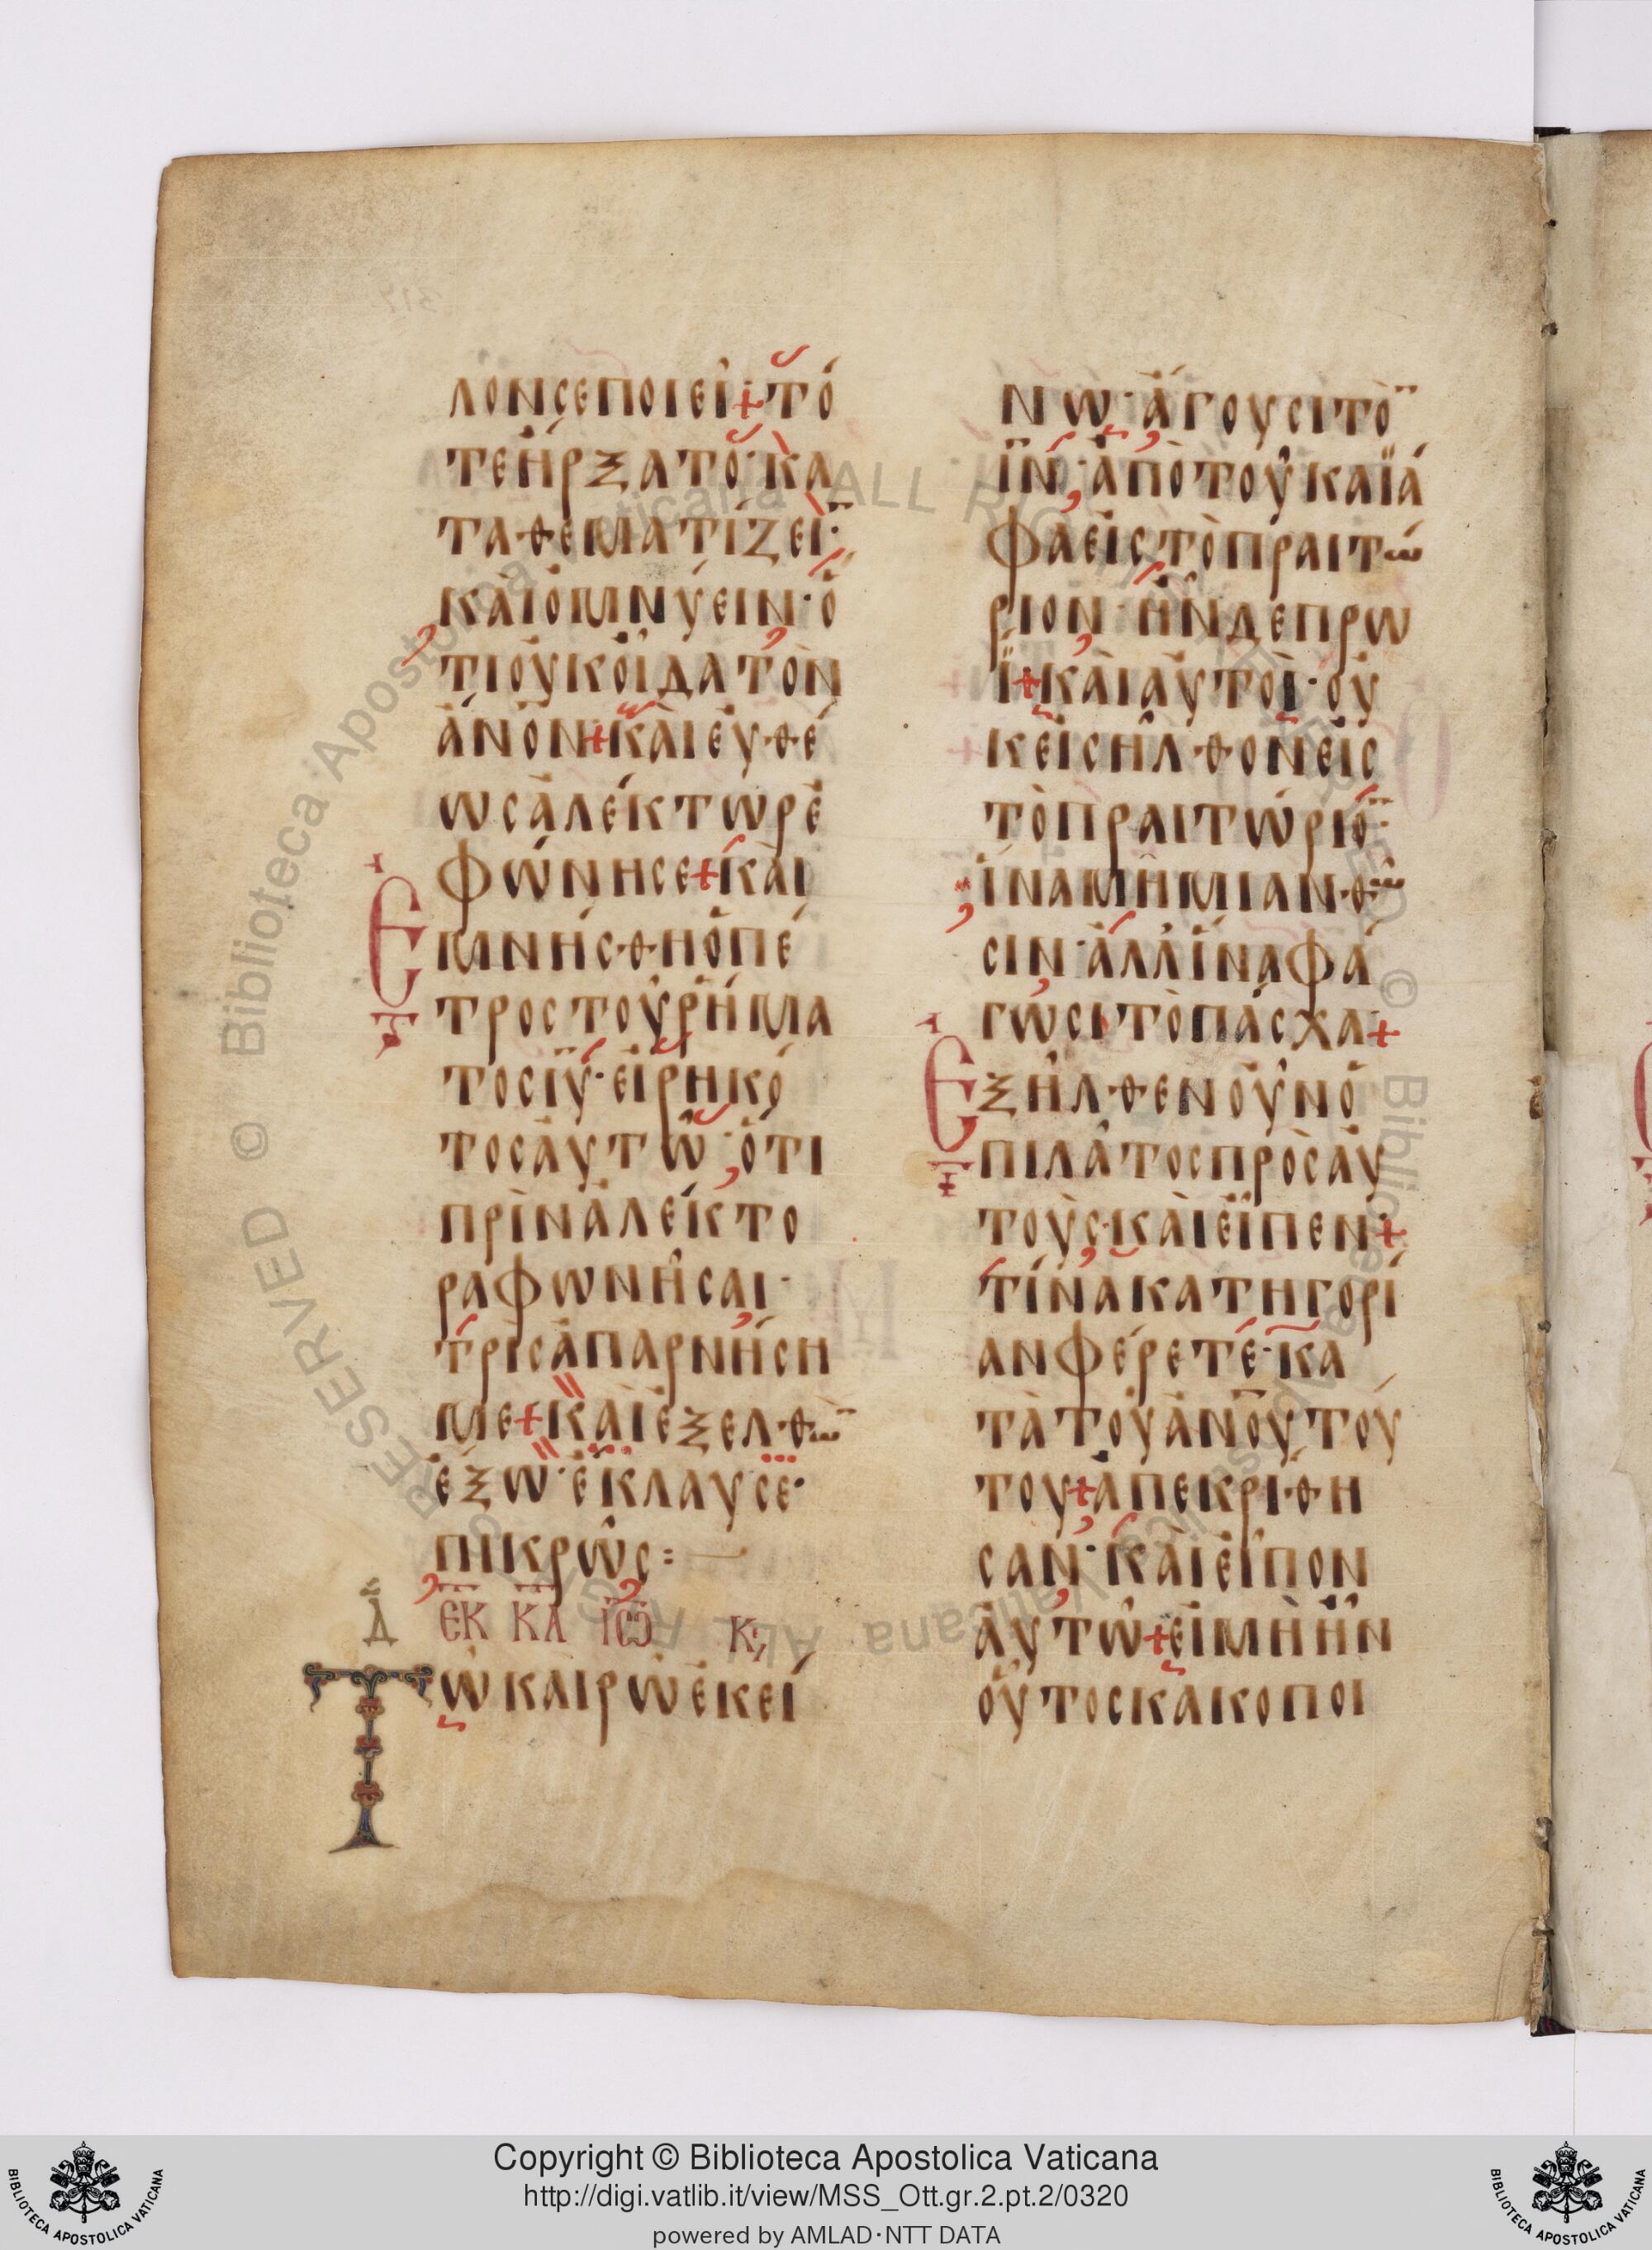 ΛΟΝϹΕΠΟΙΕῖ+ΤΌ
ΤΕἬΡΞΑΤΟ·ΚΑ
ΤΑΘΕΜΑΤΊΖΕῙ·
ΚΑῚὈΜΝΎΕΙΝ·Ὅ
ΤΙΟὐΚΟἾΔΑΤῸΝ
ἌΝΟΝ+ΚΑῚΕὐΘΈ
ΩϹἈΛΈΚΤΩΡἘ
ΦΏΝΗϹΕ+ΚΑῚ
ΕΜΝΉϹΘΗὉΠΈ
ΤΡΟϹΤΟῦῬΉΜΑ
ΤΟϹῙΥ·ΕἰΡΗΚΌ
ΤΟϹΑὐΤῶ·ὍΤΙ
ΠΡῚΝἈΛΈΚΤΟ
ΡΑΦΩΝῆϹΑΙ·
ΤΡῚϹἈΠΑΡΝΉϹΗ
ΜΕ+ΚΑῚἘΞΕΛΘῺ
ἜΞΩ·ἜΚΛΑΥϹΕ·
ΠΙΚΡῶϹ:
Δ ΕΚ ΚΑ ΙΩ Κ;
ΤῶΚΑΙΡῶἘΚΕΊ
ΝΩ·ἌΓΟΥϹΙΤῸ
ῙΝ·ἈΠῸΤΟῦΚΑΪΆ
ΦΑΕἰϹΤῸΠΡΑΙΤΏ
ΡΙΟΝ·ἮΝΔΕΠΡΩ
Ϊ+ΚΑῚΑὐΤΟῚ·ΟὐΚ
ΚΕἰϹΗΛΘΟΝΕἰϹ
ΤῸΠΡΑΙΤΏΡΙΟ·
ἽΝΑΜῊΜΙΑΝΘῶ
ϹΙΝ·ἈΛΛἽΝΑΦΆ
ΓΩϹΙΤῸΠΆϹΧΑ+
ΕΞῆΛΘΕΝΟὖΝὉ
ΠΙΛᾶΤΟϹΠΡῸϹΑὐ
ΤΟῪϹ·ΚΑῚΕἾΠΕΝ+
ΤΊΝΑΚΑΤΗΓΟΡΊ
ΑΝΦΈΡΕΤΕ·ΚΑ
ΤᾺΤΟῦἈΝΟΥΤΟΎ
ΤΟΥ+ἈΠΕΚΡΊΘΗ
ϹΑΝ·ΚΑῚΕἾΠΟΝ
ΑὐΤῶ+ΕἰΜῊἮΝ
ΟὗΤΟϹΚΑΚΟΠΟΙ
© Biblioteca Apostolica Vaticana ALL RIGHTS RESERVED
Copyright © Biblioteca Apostolica Vaticana
http://digi.vatlib.it/view/MSS_Ott.gr.2.pt.2/0320
powered by AMLAD·NTT DATA
BIBLIOTECA APOSTOLICA VATICANA
BIBLIOTECA APOSTOLICA VATICANA